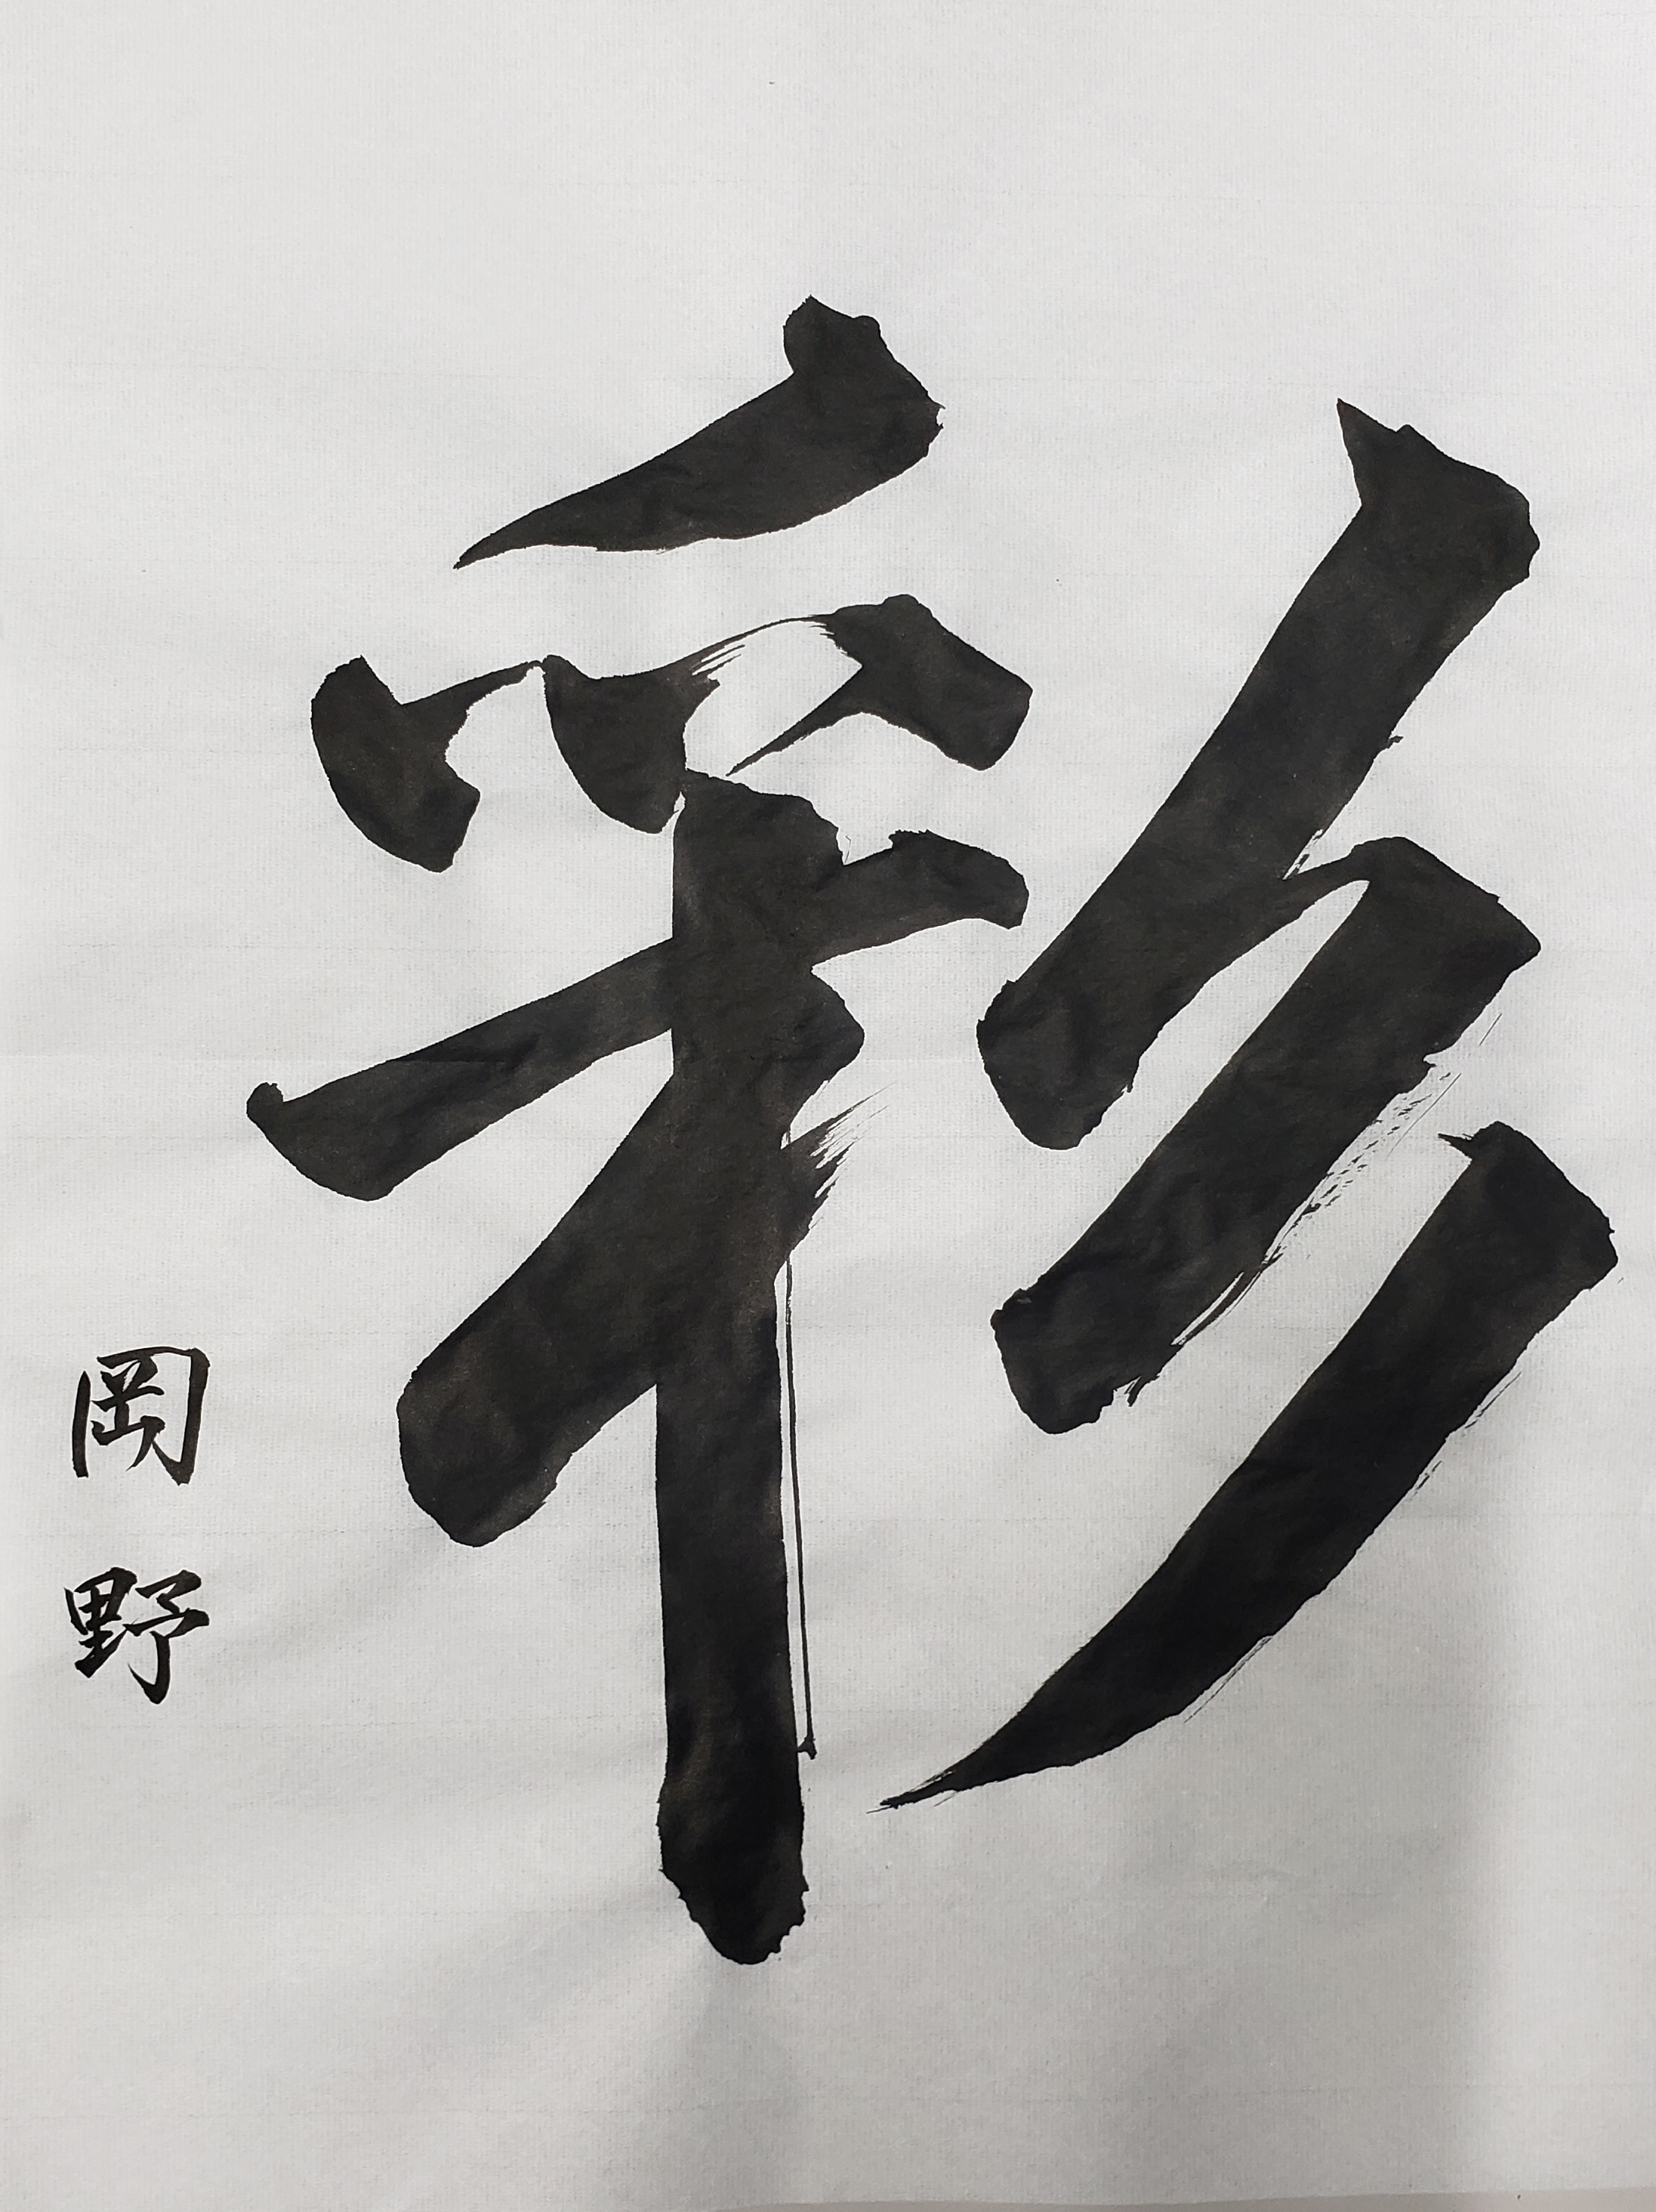 彩
岡野